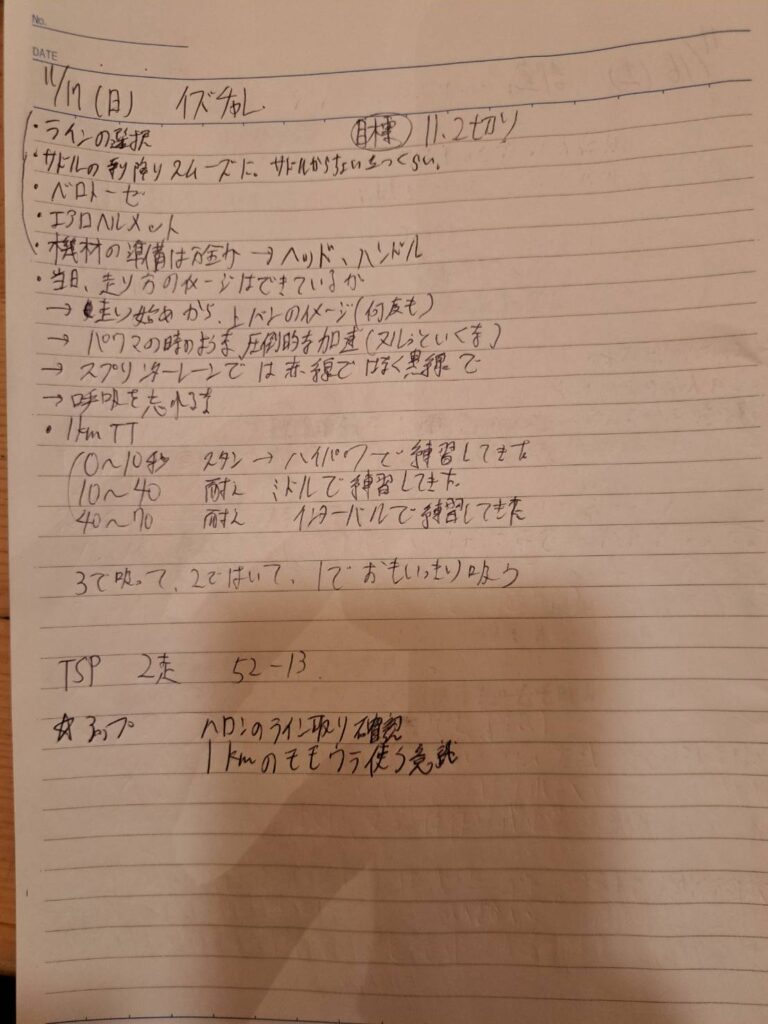 No.
DATE
11/17(日) イズチャレ
・ラインの選択 目標 11.2切り
・サドルの乗り降りスムーズに。サドルからちょい立つくらい。
・ベロトーゼ
・エアロヘルメット
・機材の準備は万全か → ヘッド、ハンドル
・当日、走り方のイメージはできているか
→ 走り始めから、上バンのイメージ(何度も)
→ パワマの時のような圧倒的な加速(ヌルっといくな)
→ スプリンターレーンでは赤線ではなく黒線で
→ 呼吸を忘れるな
・1km TT
0〜10秒 スタン → ハイパワーで練習してきた
10〜40 耐え ミドルで練習してきた
40〜70 耐え インターバルで練習してきた
3で吸って、2ではいて、1でおもいっきり吸う
TSP 2走 52-13
☆アップ ハロンのライン取り確認
1kmのモモウラ使う意識